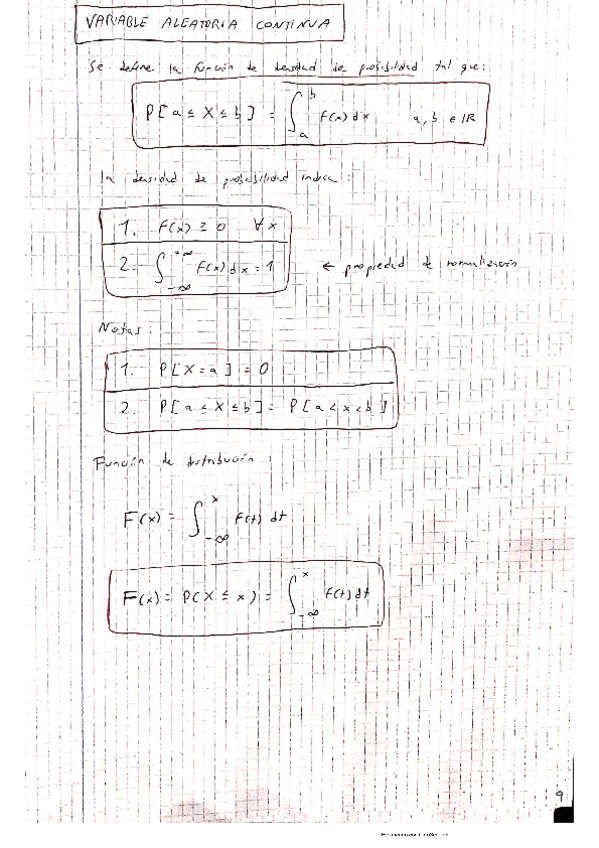 VARIABLE ALEATORIA CONTINUA
Se define la función de densidad de probabilidad tal que:
P[a ≤ X ≤ b] = ∫_a^b f(x) dx a, b ∈ IR
la densidad de probabilidad indica:
1. f(x) ≥ 0 ∀x
2. ∫_{-∞}^{+∞} f(x) dx = 1 ← propiedad de normalización
Notas:
1. P[X = a] = 0
2. P[a ≤ X ≤ b] = P[a < x < b]
Función de distribución:
F(x) = ∫_{-∞}^x f(t) dt
F(x) = P(X ≤ x) = ∫_{-∞}^x f(t) dt
9